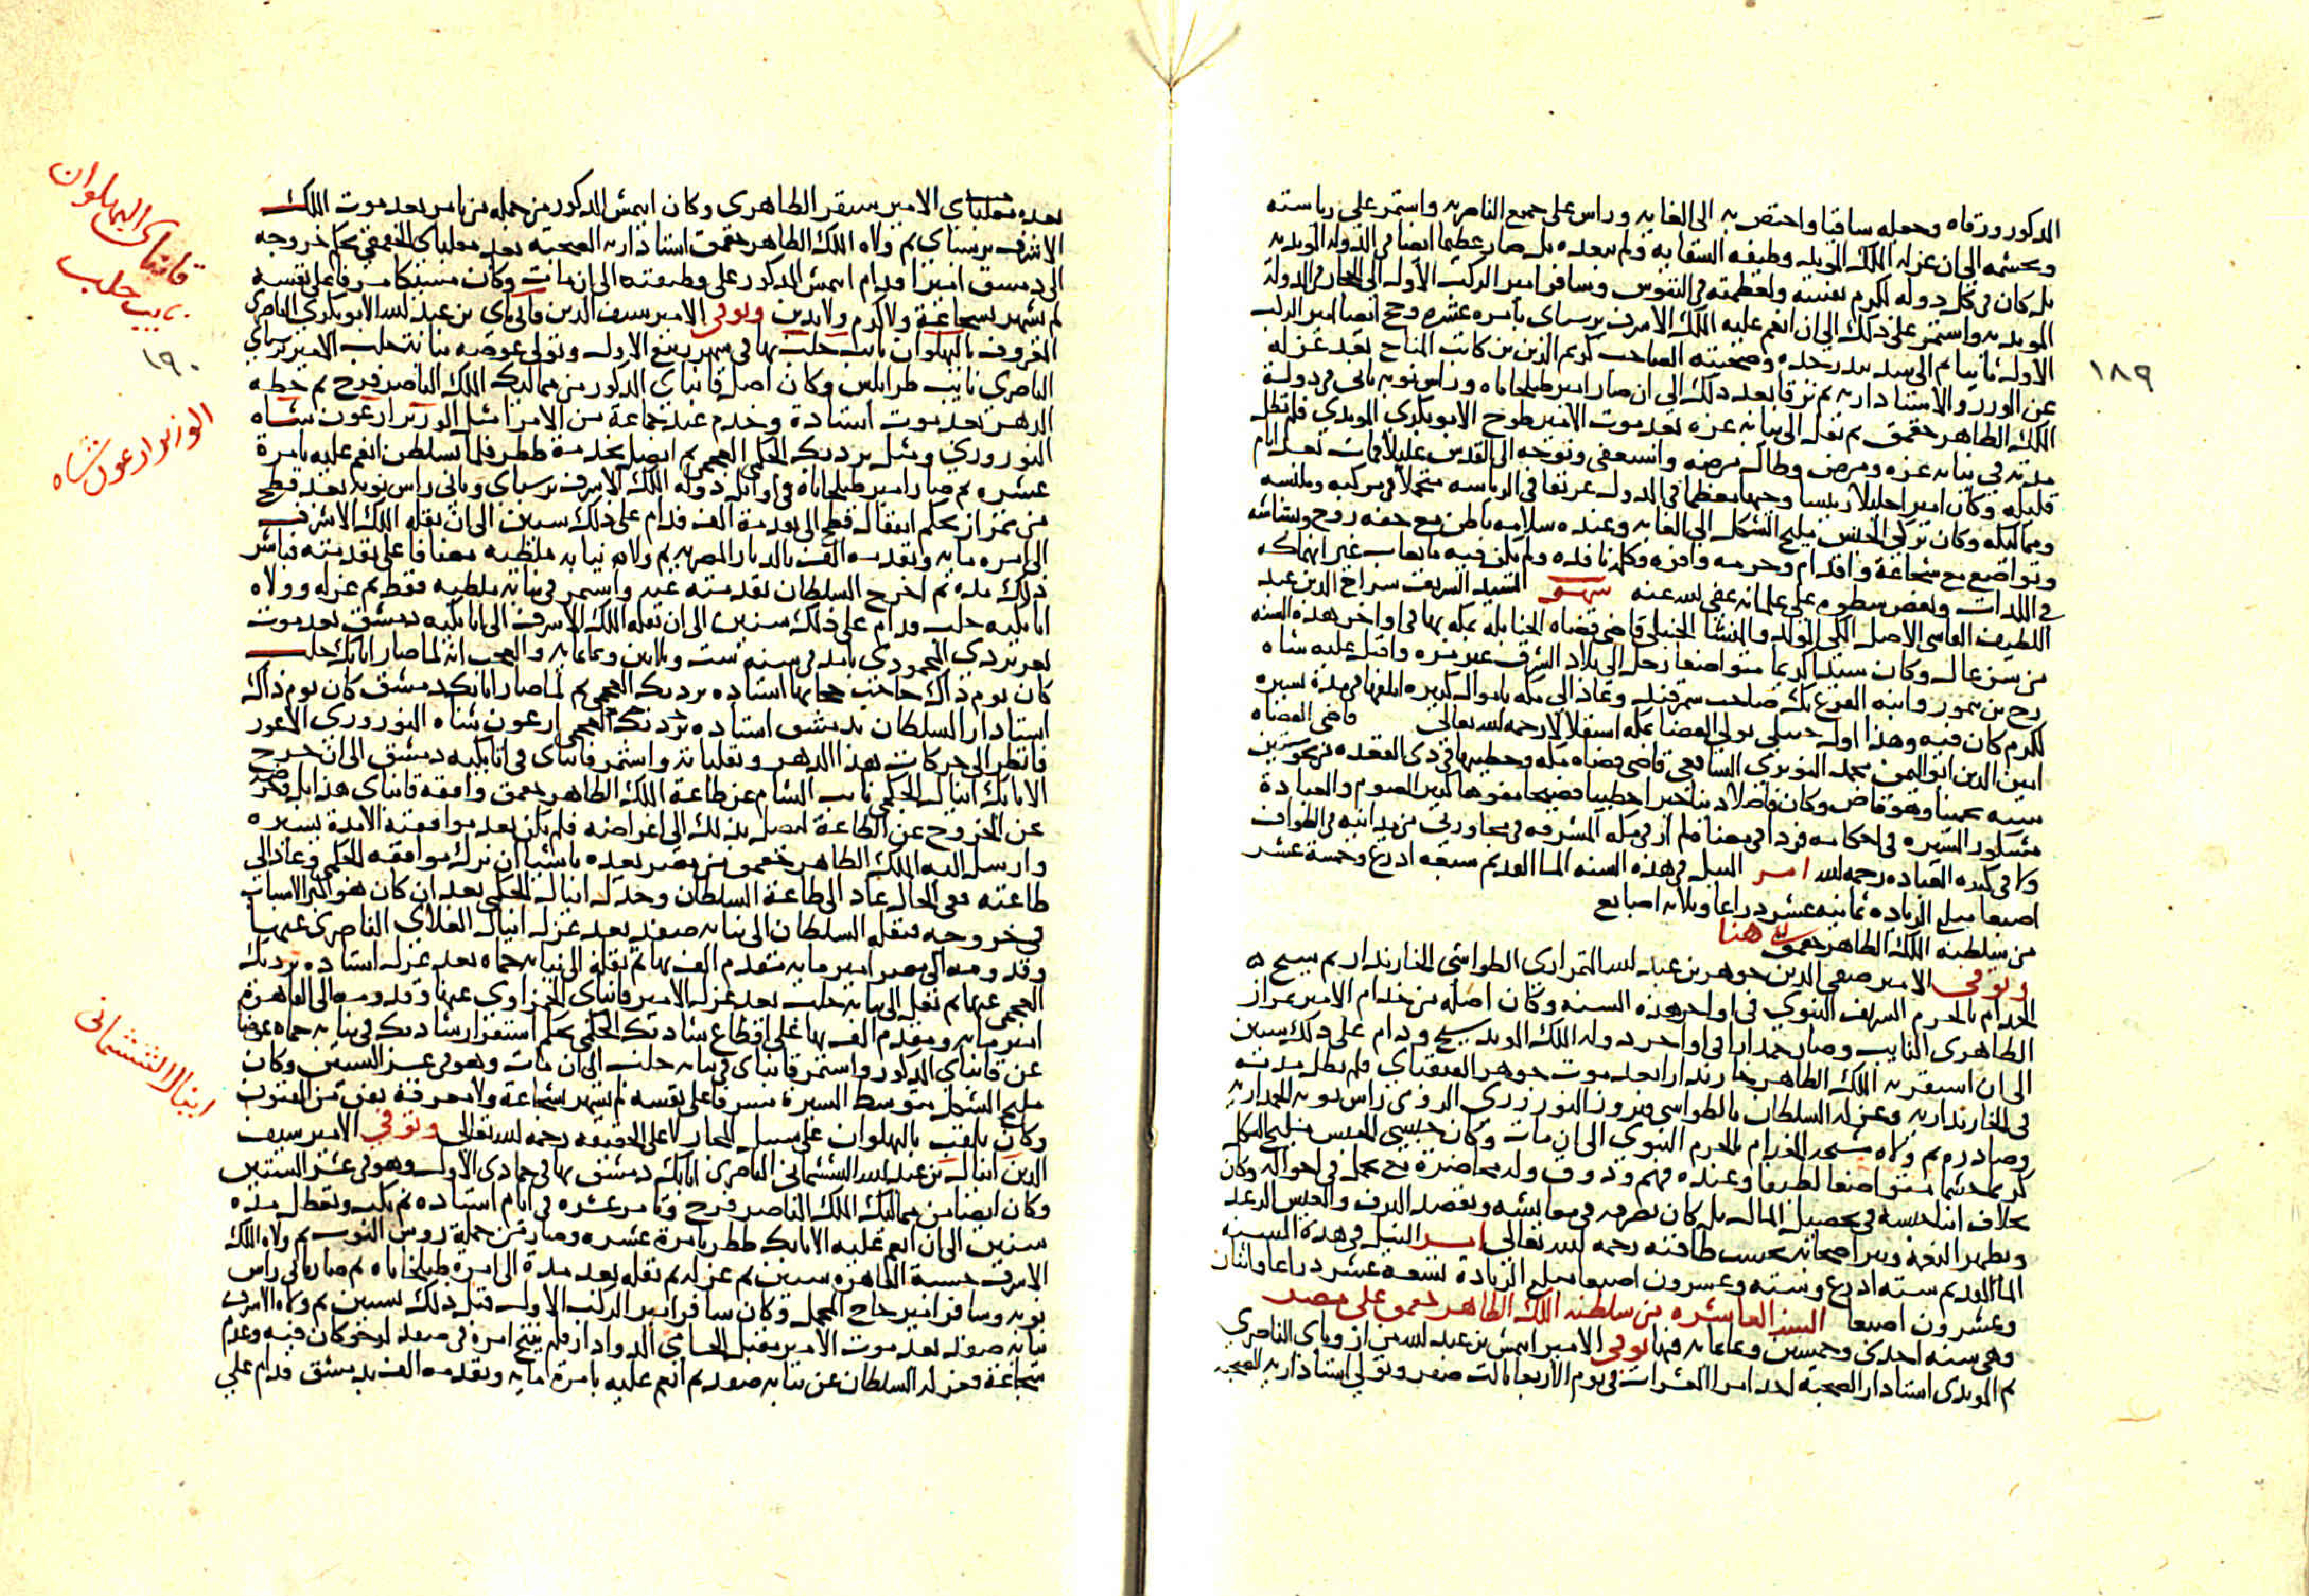 المذكور ورقاه وجعله ساقيا واختص به الى الغايه وراس على جميع الناصريه واستمر على رياسته
وحشمه الى ان عزله الملك المويد وظيفه السقايه ولم يبعده بل صار عظيما ايضا فى الدوله المويديه
بل كان فى كل دوله لكرم نفسه ولعظمته فى النفوس وسافر امير الركب الاول الى الحجاز فى الدوله
المويديه واستمر على ذلك الى ان انعم عليه الملك الاشرف برسباى بامره عشره وحج ايضا امير الركب
الاول ثانيا ثم الى بندر جده وصحبته الصاحب كريم الدين بن كاتب المناخ بعد عزله
عن الوزر والاستاداريه ثم ترقا بعد ذلك الى ان صار امير طبلخاناه وراس نوبه ثانى فى دولة
الملك الظاهر جقمق ثم نقله الى نيابه غزه بعد موت الامير طوخ الابوبكرى المويدى فلم تطل
مدته فى نيابه غزه ومرض وطال مرضه واستعفى وتوجه الى القدس عليلا فمات بعد ايام
قليله وكان اميرا جليلا رييسا وجيها معظما فى الدول عريقا فى الرياسه متجملا فى مركبه وملبسه
ومماليكه وكان تركى الجنس مليح الشكل الى الغايه وعنده سلامه باطن مع خفه روح وبشاشه
وتواضع مع شجاعة واقدام وحرمه وافره وكلمه نافذه ولم يكن فيه ما يعاب غير انهماكه
فى اللذات وبعض سطوه على غلمانه عفى الله عنه السيد الشريف سراج الدين عبد
اللطيف الفاسى الاصل المكى المولد والمنشا الحنبلى قاضى قضاه الحنابله بمكه بها فى اواخر هذه السنه
عن سن عال وكان سيدا كريما متواضعا رحل الى بلاد الشرق غير مره واقبل عليه شاه
رخ بن تمور وابنه الوغ بك صاحب سمرقند وعاد الى مكه باموال كثيره اتلفها فى مدة يسيره
لكرم كان فيه وهذا اول حنبلى تولى القضا بمكه استقلالا رحمه الله تعالى قاضى القضاه
امين الدين ابو اليمن محمد النويرى الشافعى قاضى قضاه مكه وخطيبها فى ذى القعده عن نحو ستين
سنه تخمينا وهو قاض وكان فاضلا دينا خيرا خطيبا فصيحا مفوها كثير الصوم والعبادة
مشكور السيره فى احكامه فردا فى معناه لم ار فى مكه المشرفه فى مجاورتى من يدانيه فى الطواف
ولا فى كثره العباده رحمه الله امر النيل فى هذه السنه الما القديم سبعه اذرع وخمسة عشر
اصبعا مبلغ الزياده ثمانيه عشر دراعا وثلاثه اصابع
من سلطنه الملك الظاهر جقمق هنا
وتوفى الامير صفى الدين جوهر بن عبد الله التمرازى الطواشى الخازندار ثم شيخ
الخدام بالحرم الشريف النبوى فى اواخر هذه السنه وكان اصله من خدام الامير تمراز
الظاهرى النايب وصار جمدارا فى اواخر دوله الملك المويد شيخ ودام على ذلك سنين
الى ان استقر به الملك الظاهر خازندارا بعد موت جوهر القنقباى فلم تطل مدته
فى الخازنداريه وعزله السلطان بالطواشى فيروز النوروزى الرومى راس نوبه الجمداريه
وصادره ثم ولاه مشيخه الخدام بالحرم النبوى الى ان مات وكان حبشى الجنس مليح الشكل
كريما حشما متواضعا لطيفا وعنده فهم وذوق وله محاضرة مع تجمل فى احواله وكان
بخلاف ابنا جنسه فى تحصيل المال بل كان يصرفه فى معايشه ويقصد الترف والعيش الرغد
ويظهر النعمه ويبر اصحابه بحسب طاقته رحمه الله تعالى امر النيل فى هذة السنه
الما القديم سته اذرع وسته وعشرون اصبعا مبلغ الزيادة تسعه عشر دراعا واثنان
وعشرون اصبعا السنه العاشره من سلطنه الملك الظاهر جقمق على مصر
وهى سنه احدى وخمسين وثمانمايه فيها توفى الامير ايتمش بن عبد الله من ازوباى الناصرى
ثم المويدى استادار الصحبه احد امرا العشرات فى يوم الاربعا ثالث صفر وتولى استاداريه الصحبه
١٨٩
بعده مغلباى الامير سنقر الظاهرى وكان ايتمش المذكور من جمله من تامر بعد موت الملك
الاشرف برسباى ثم ولاه الملك الظاهر جقمق استاداريه الصحبه بعد مغلباى الجقمقى بحكم خروجه
الى دمشق اميرا ودام ايتمش المذكور على وظيفته الى ان مات وكان مسيكا مسرفا على نفسه
لم يشهر بشجاعة ولا كرم ولا تدين وتوفى الامير سيف الدين قانى باى بن عبد الله الابوبكرى الناصرى
المعروف بالبهلوان نايب حلب بها فى شهر ربيع الاول وتولى عوضه نيابه حلب الامير برسباى
الناصرى نايب طرابلس وكان اصل قانباى المذكور من مماليك الملك الناصر فرج ثم حطه
الدهر بعد موت استاده وخدم عند جماعة من الامرا مثل الوزير ارغون شاه
النوروزى ومثل بردبك الجكمى العجمى ثم اتصل بخدمة ططر فلما تسلطن انعم عليه بامرة
عشره ثم صار امير طبلخاناه فى اوايل دوله الملك الاشرف برسباى وثانى راس نوبه بعد قطج
من تمراز بحكم انتقال قطج الى تقدمة الف فدام على ذلك سنين الى ان نقله الملك الاشرف
الى امره مايه وتقدمه الف بالديار المصريه ثم ولاه نيابه ملطيه مضافا على تقدمته فباشر
ذلك مده ثم اخرج السلطان تقدمته عنه واستمر فى نيابه ملطيه فقط ثم عزله وولاه
اتابكيه حلب ودام على ذلك سنين الى ان نقله الملك الاشرف الى اتابكيه دمشق بعد موت
تغرى بردى المحمودى بامد فى سنه ست وثلاثين وثمانمايه والعجب انه لما صار اتابك حلب
كان يوم ذاك حاجب حجابها استاده بردبك العجمى ثم لما صار اتابك دمشق كان يوم ذاك
استادار السلطان بدمشق استاده ارغون شاه النوروزى الاعور
فانظر الى حركات هذا الدهر وتقلباته واستمر قانباى فى اتابكيه دمشق الى ان خرج
الاتابك اينال الجكمى نايب الشام عن طاعة الملك الظاهر جقمق وافقه قانباى هذا
عن الخروج عن الطاعة ليصل بذلك الى اغراضه فلم يكن بعد موافقته الا مدة يسيره
وارسل اليه الملك الظاهر جقمق من يعده باشيا ان ترك موافقه الجكمى وعاد الى
طاعته ففى الحال عاد الى طاعة السلطان وخذل اينال الجكمى بعد ان كان هو اكبر الاسباب
فى خروجه فنقله السلطان الى نيابه صفد بعد عزل اينال العلاى الناصرى عنها
وقدومه الى مصر امير مايه مقدم الف بها ثم نقله الى نيابه حماه بعد عزل استاده بردبك
العجمى عنها ثم نقل الى نيابه حلب بعد عزل الامير قانباى الحمزاوى عنها وقدومه الى القاهرة
امير مايه ومقدم الف بها على اقطاع شادبك الجكمى بحكم استقرار شادبك فى نيابه حماه عوضا
عن قانباى المذكور واستمر قانباى فى نيابه حلب الى ان مات وهو فى عشر الستين وكان
مليح الشكل متوسط السيرة مسرفا على نفسه لم يشهر بشجاعة ولا معرفة بفن من الفنون
وكان يلقب بالبهلوان على سبيل المجاز لا على الحقيقه رحمه الله تعالى وتوفى الامير سيف
الدين اينال بن عبد الله الششمانى الناصرى اتابك دمشق بها فى جمادى الاول وهو فى عشر الستين
وكان ايضا من مماليك الملك الناصر فرج وتامر عشره فى ايام استاده ثم نكب وتعطل مده
سنين الى ان انعم عليه الاتابك ططر بامرة عشره وصار من جملة روس النوب ثم ولاه الملك
الاشرف حسبة القاهره سنين ثم عزله ثم نقله بعد مدة الى امرة طبلخاناه ثم صار ثانى راس
نوبه وسافر امير حاج المحمل وكان سافر امير الركب الاول قبل ذلك بسنين ثم ولاه الاشرف
نيابه صفد بعد موت الامير مقبل الحسامى الدوادار فلم ينتج امره فى صفد لرخو كان فيه وعدم
شجاعة فعزله السلطان عن نيابه صفد ثم انعم عليه بامرة مايه وتقدمه الف بدمشق فدام على
قانباى البهلوان
نايب حلب
١٩٠
الوزير ارغون شاه
اينال الششمانى